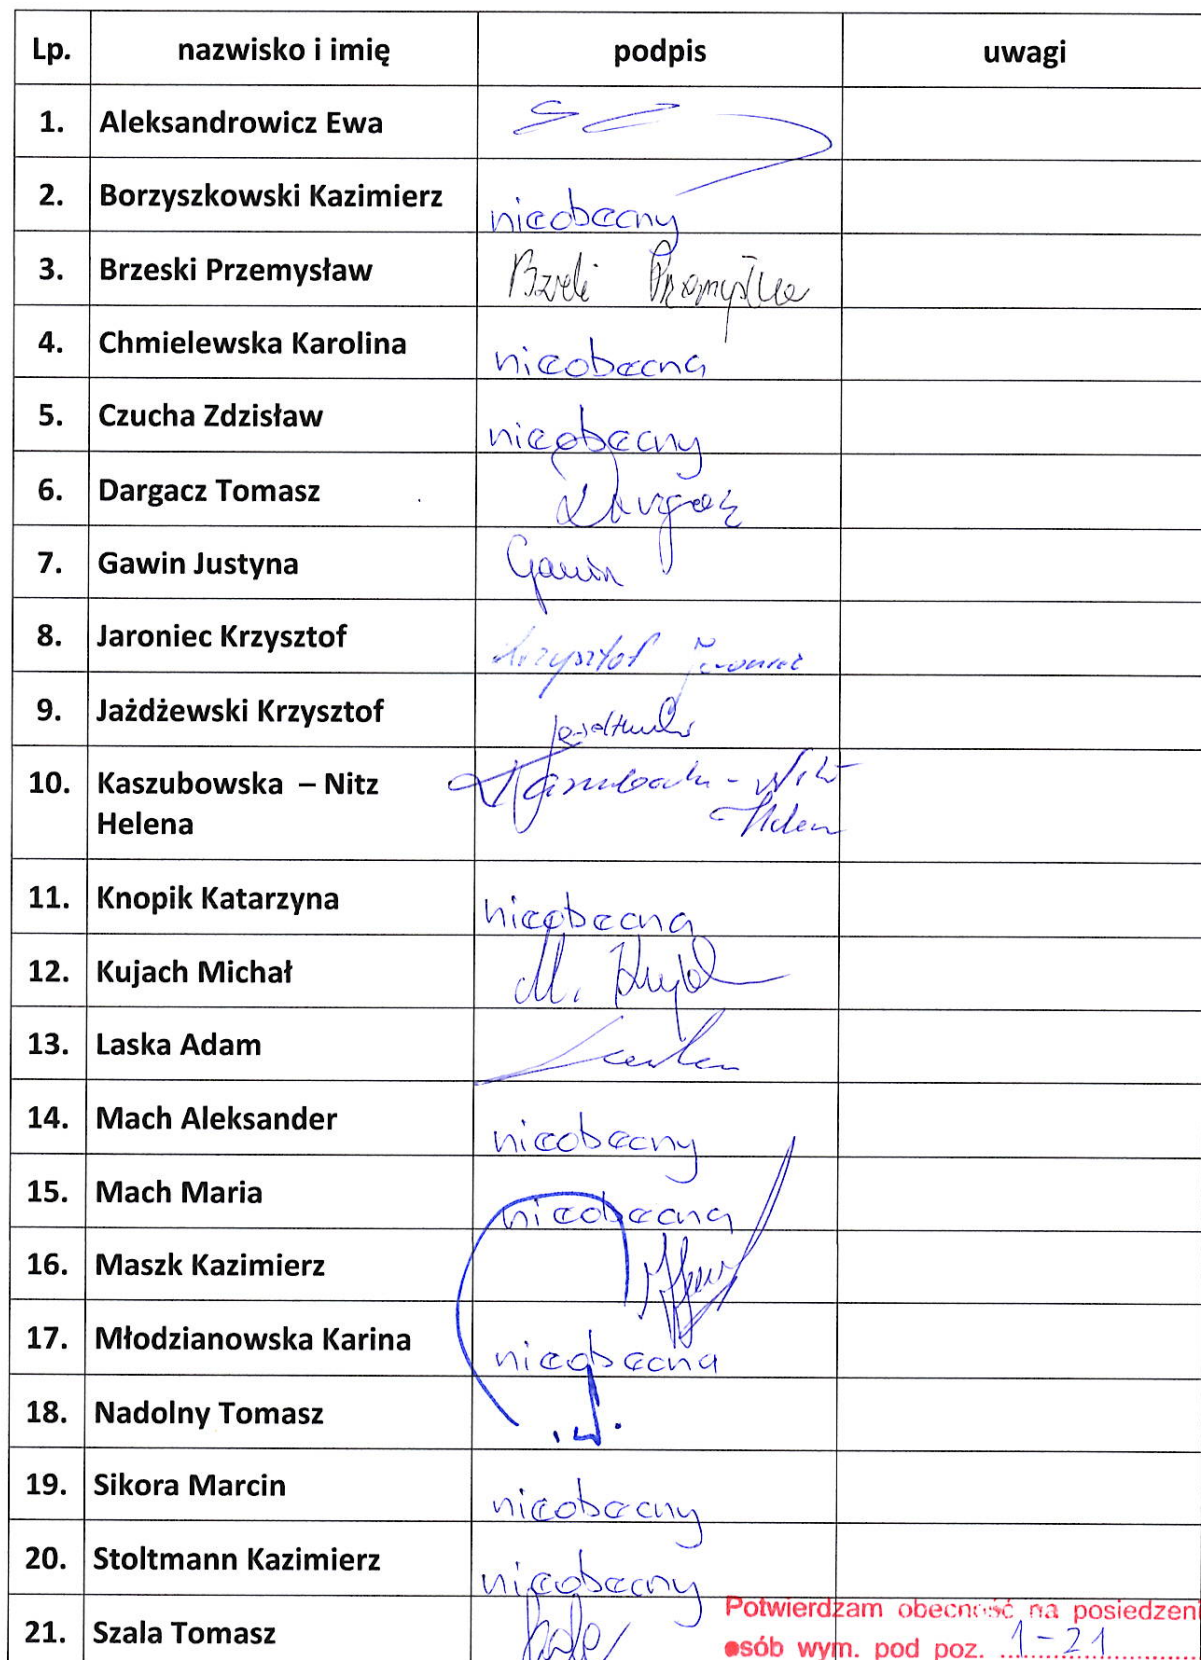 Lp. nazwisko i imię podpis uwagi
1. Aleksandrowicz Ewa
2. Borzyszkowski Kazimierz nieobecny
3. Brzeski Przemysław
4. Chmielewska Karolina nieobecna
5. Czucha Zdzisław nieobecny
6. Dargacz Tomasz
7. Gawin Justyna Gawin
8. Jaroniec Krzysztof Krzysztof
9. Jażdżewski Krzysztof
10. Kaszubowska – Nitz
Helena
11. Knopik Katarzyna nieobecna
12. Kujach Michał
13. Laska Adam
14. Mach Aleksander nieobecny
15. Mach Maria nieobecna
16. Maszk Kazimierz
17. Młodzianowska Karina nieobecna
18. Nadolny Tomasz
19. Sikora Marcin nieobecny
20. Stoltmann Kazimierz nieobecny
21. Szala Tomasz
Potwierdzam obecność na posiedzeni
osób wym. pod poz. 1-21